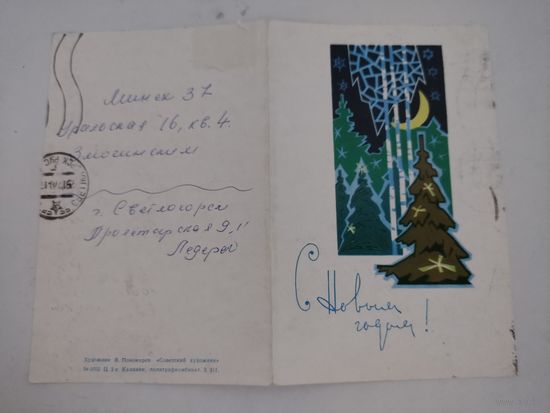 Минск 37
Уральская 16, кв. 4.
Змочинским
г. Светлогорск
Пролетарская 9,
Ледерер
Художник В. Пономарев «Советский художник»
С Новым
годом!